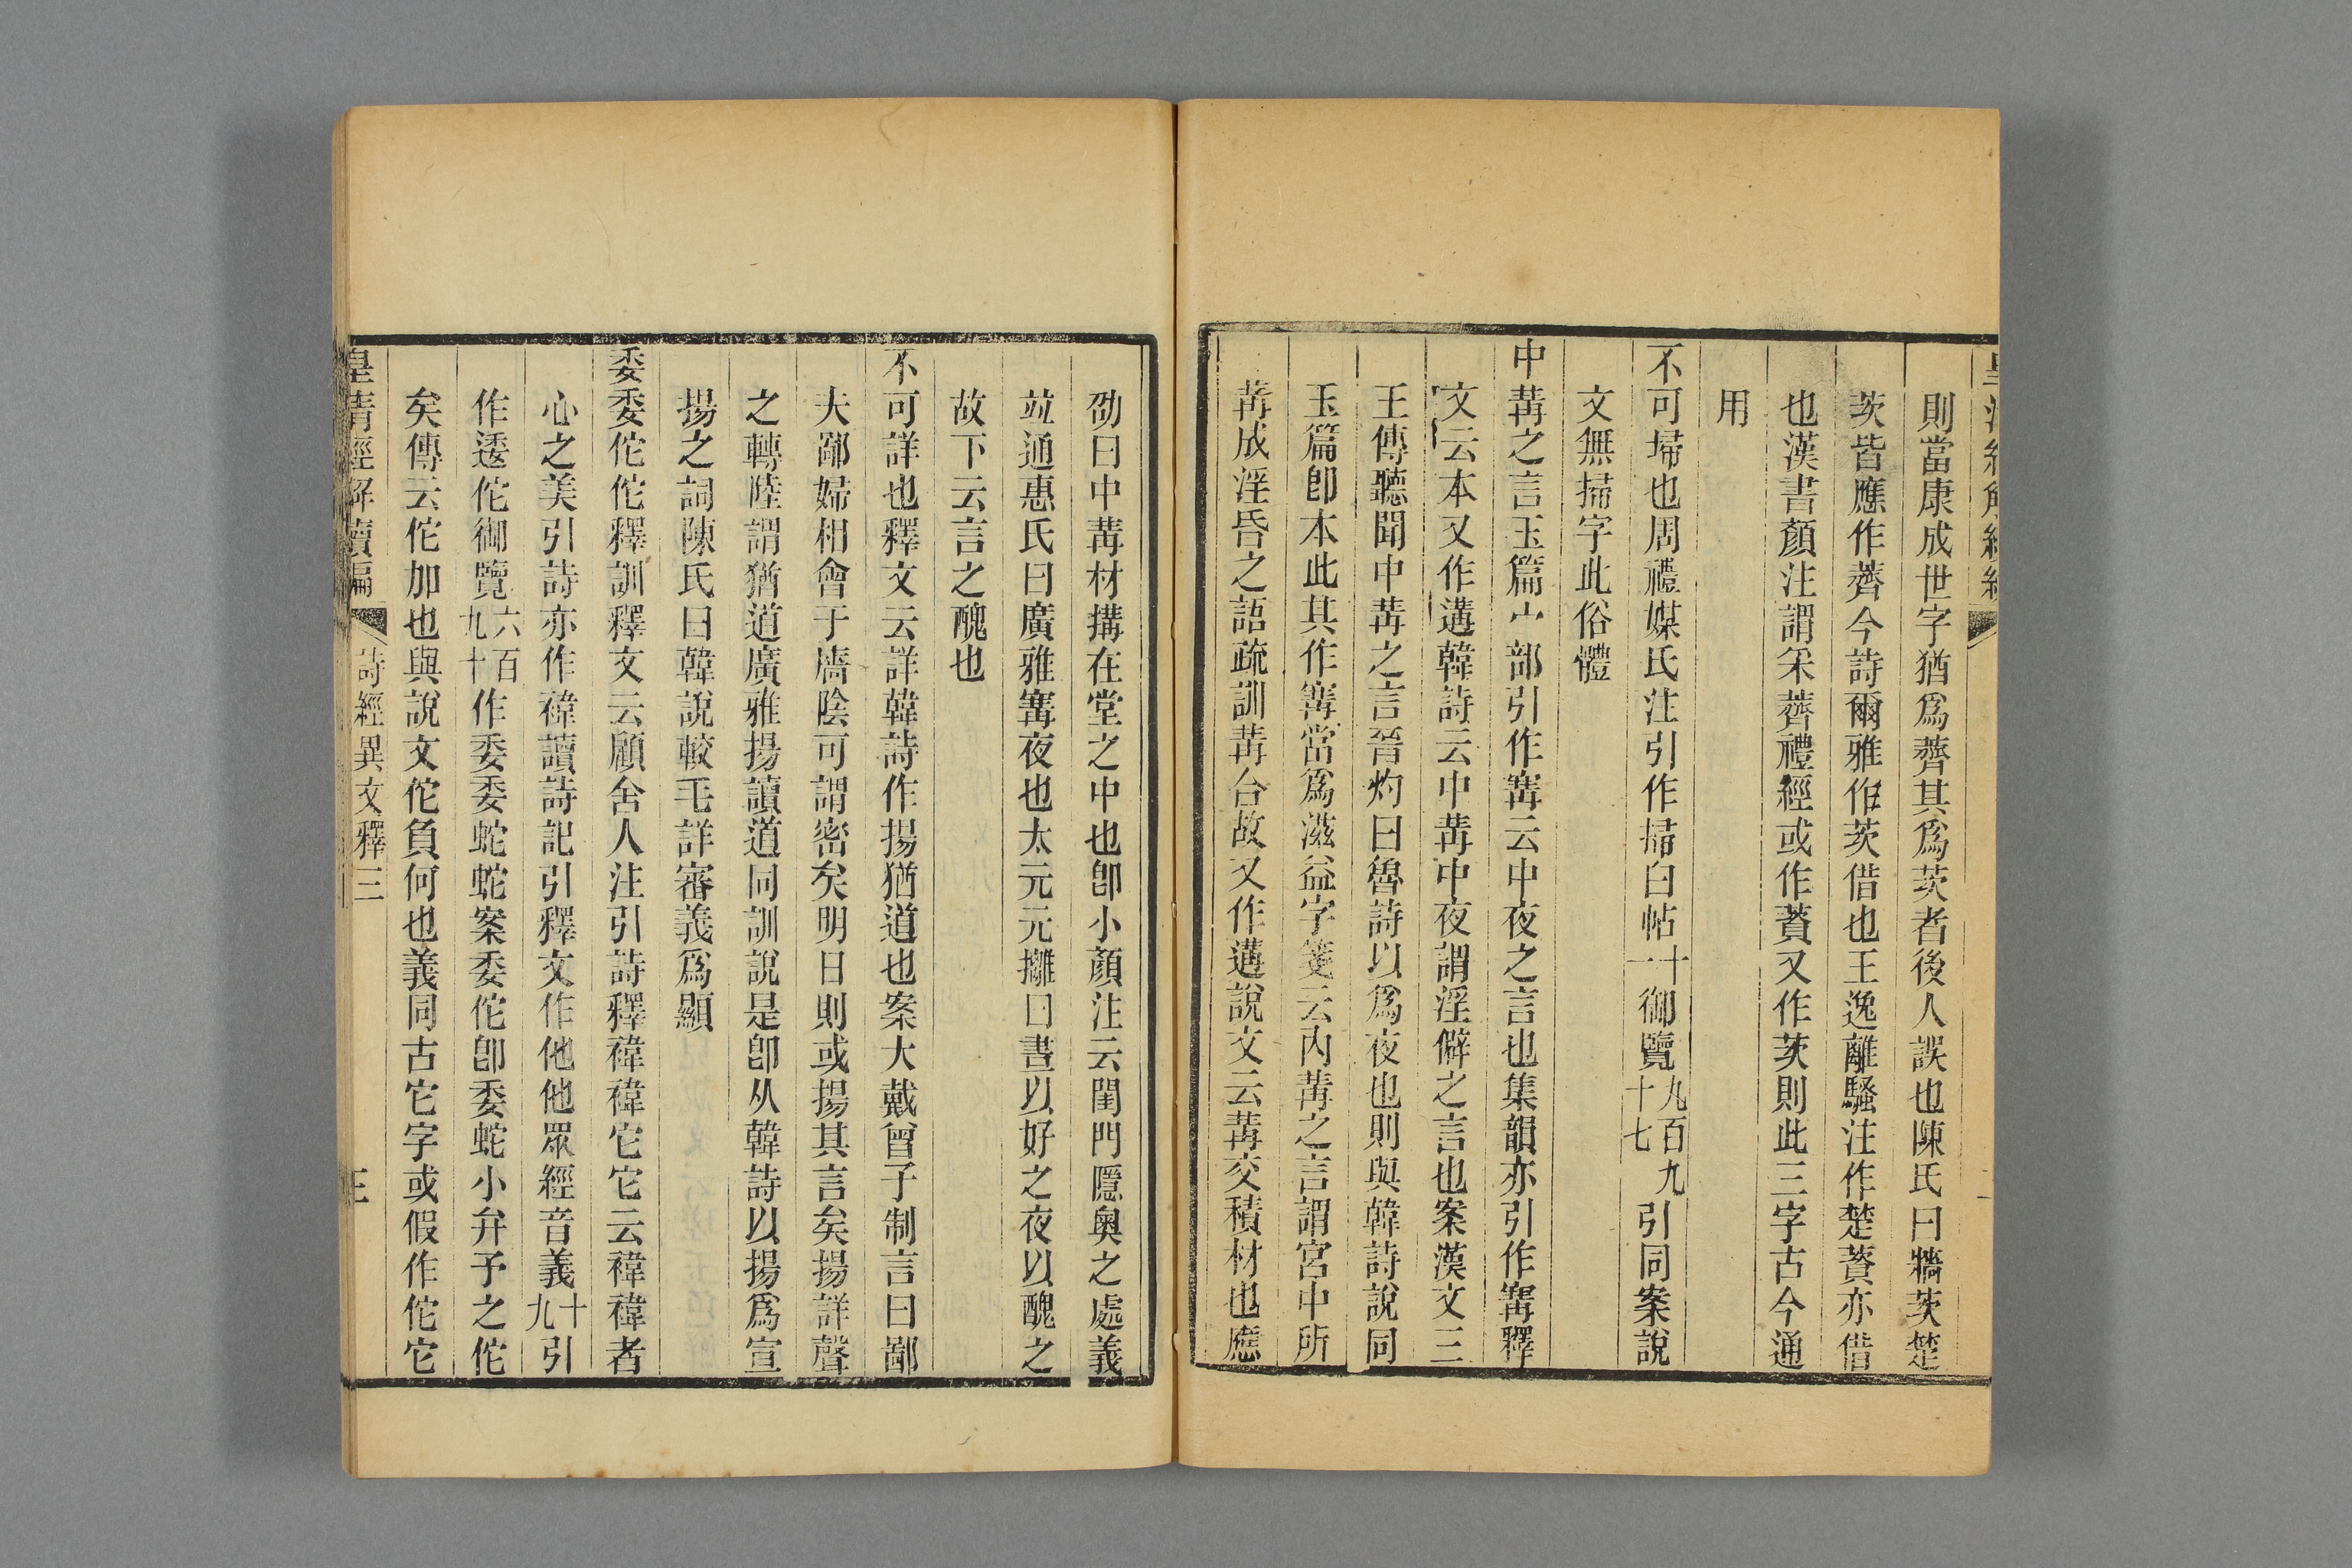 則當康成世字猶爲薺其爲茨者後人誤也陳氏曰牆茨楚
茨皆應作薺今詩爾雅作茨借也王逸離騷注作楚薋亦借
也漢書顏注謂采薺禮經或作薋又作茨則此三字古今通
用
不可埽也周禮媒氏注引作掃白帖十一御覽九百九十七引同案說
文無掃字此俗體
中冓之言玉篇宀部引作𡩡云中夜之言也集韻亦引作𡩡釋
文云本又作遘韓詩云中冓中夜謂淫僻之言也案漢文三
王傳聽聞中冓之言晉灼曰魯詩以爲夜也則與韓詩說同
玉篇卽本此其作𡩡當爲滋益字箋云內冓之言謂宮中所
冓成淫昏之語疏訓冓合故又作遘說文云冓交積材也應
劭曰中冓材搆在堂之中也卽小顏注云閨門隱奧之處義
竝通惠氏曰廣雅𡩡夜也太元元攡曰晝以好之夜以醜之
故下云言之醜也
不可詳也釋文云詳韓詩作揚猶道也案大戴曾子制言曰鄙
夫鄙婦相會于牆陰可謂密矣明日則或揚其言矣揚詳聲
之轉陸謂猶道廣雅揚讀道同訓說是卽从韓詩以揚爲宣
揚之詞陳氏曰韓說較毛詳審義爲顯
委委佗佗釋訓釋文云顧舍人注引詩釋褘褘它它云褘褘者
心之美引詩亦作褘讀詩記引釋文作他他眾經音義十九引
作逶佗御覽六百九十作委委蛇蛇案委佗卽委蛇小弁予之佗
矣傳云佗加也與說文佗負何也義同古它字或假作佗它
皇清經解續編 詩經異文釋三